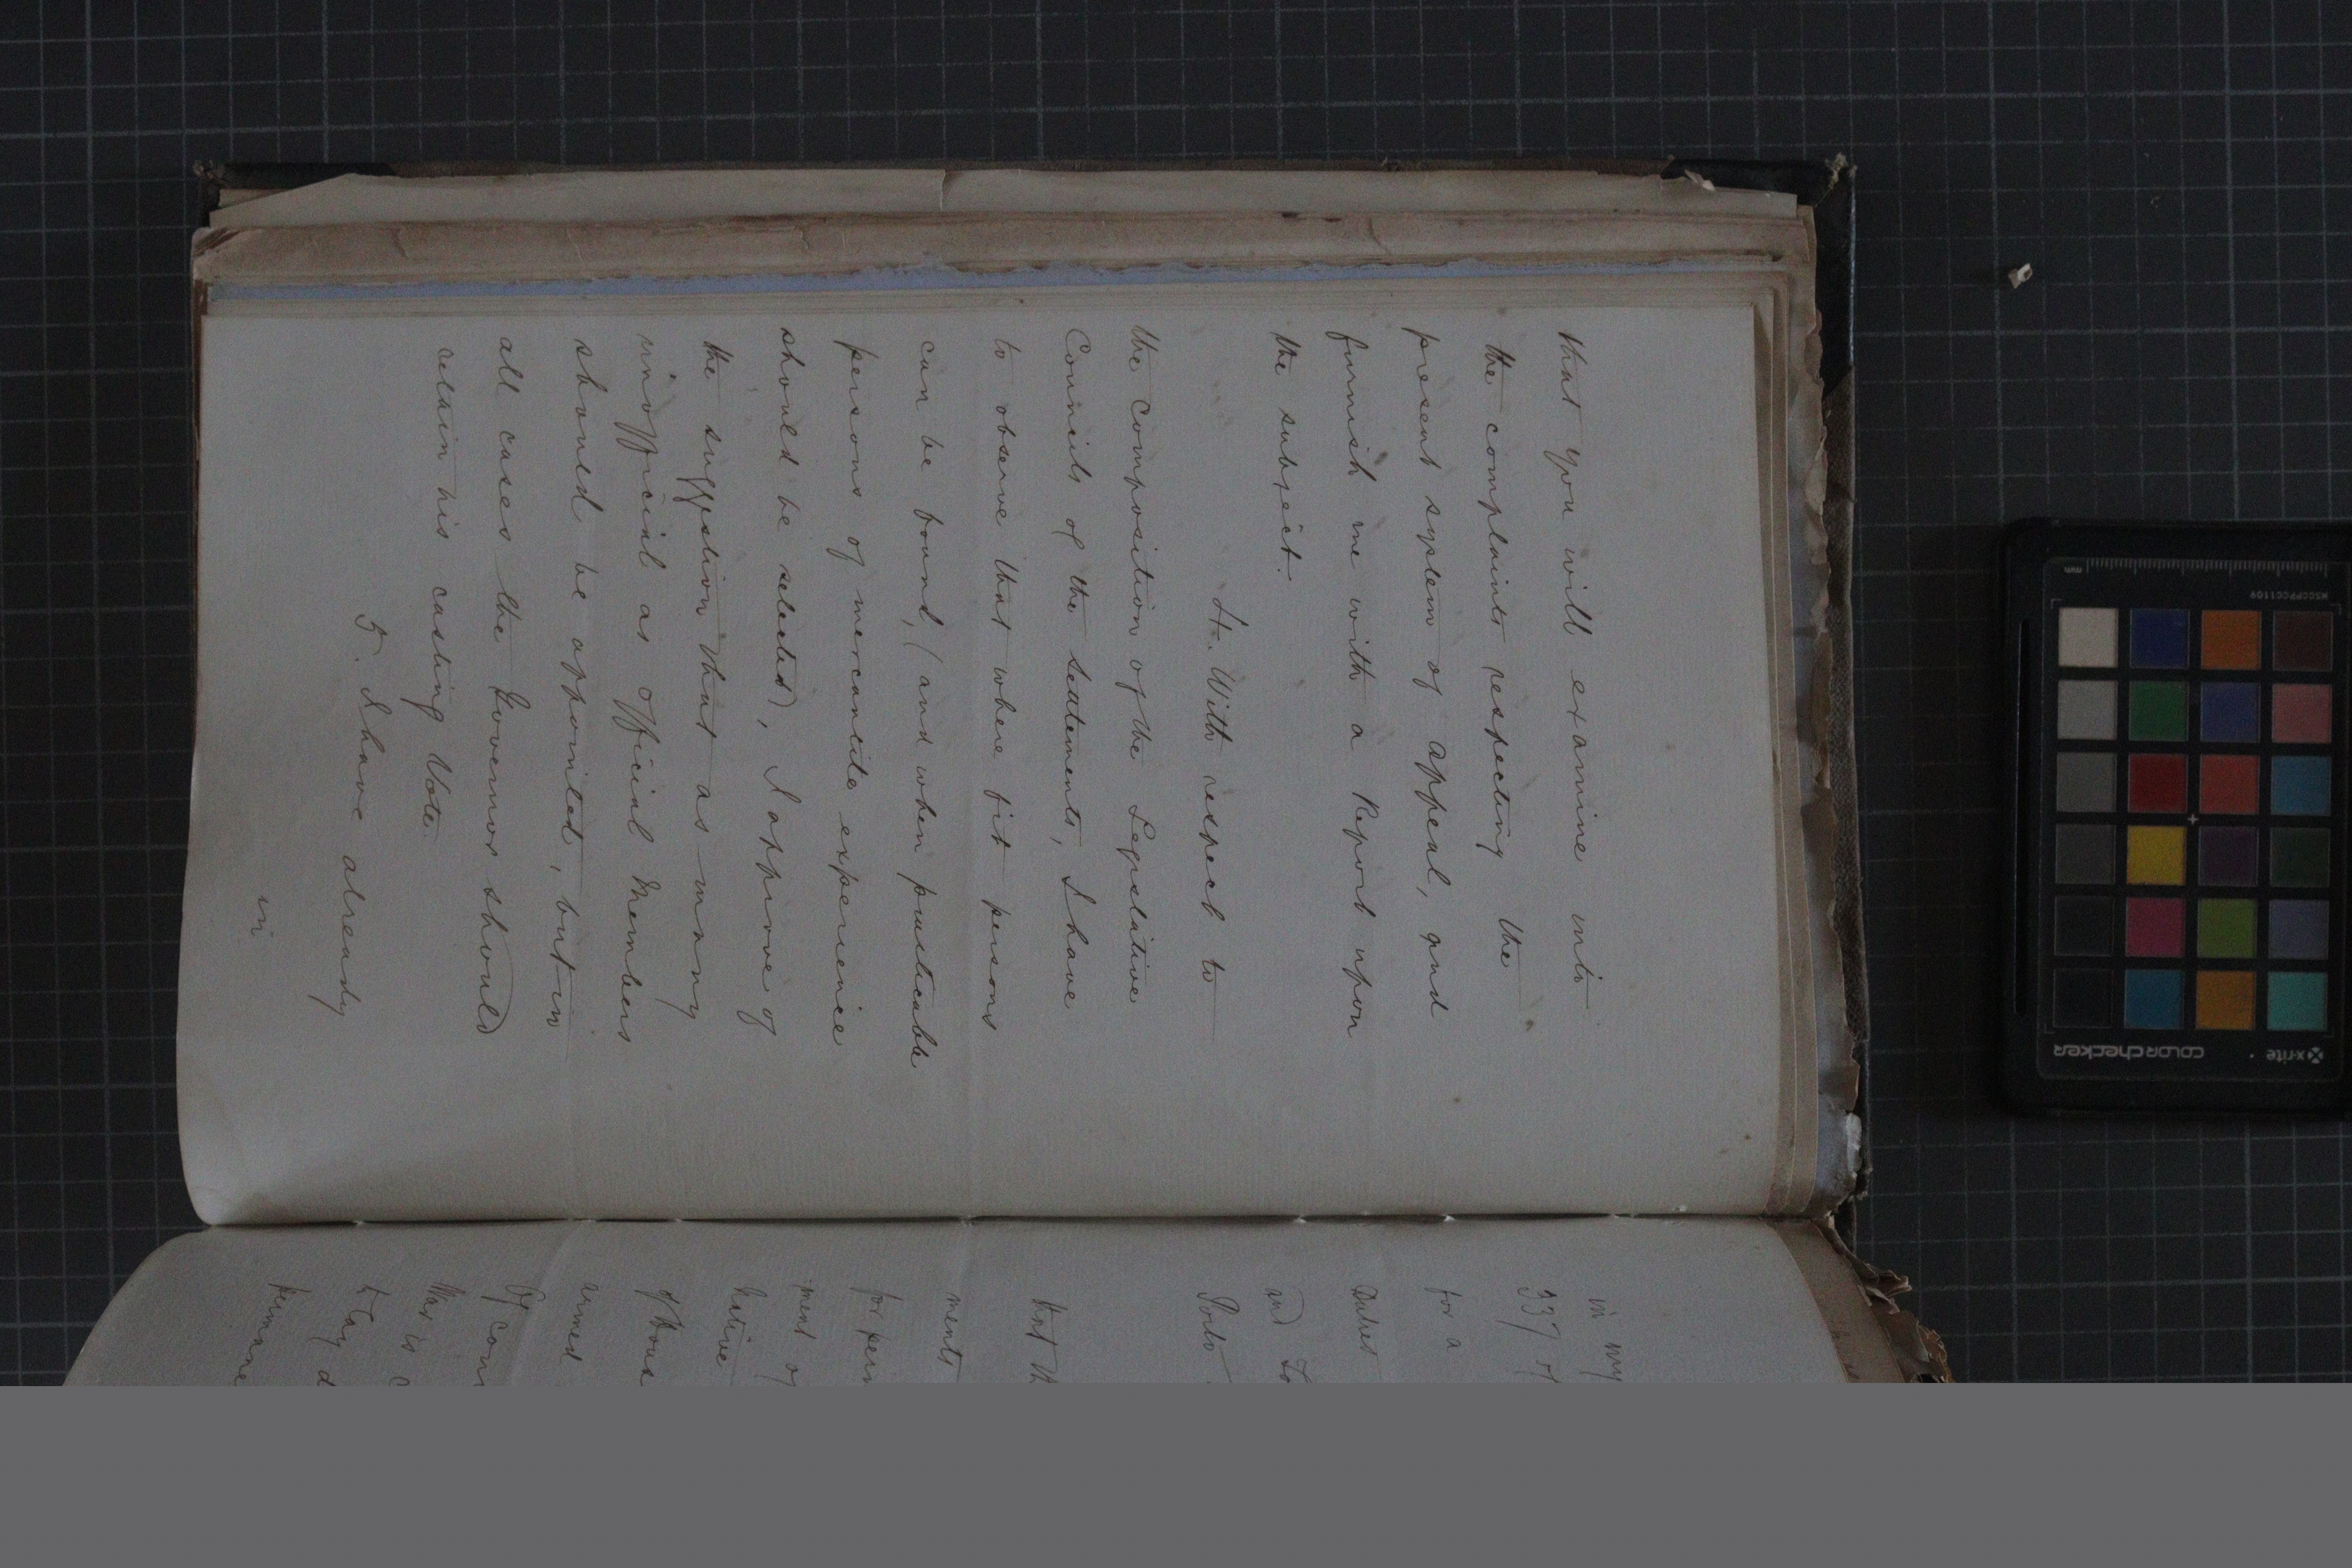 that you will examine into
the complaints respecting the
present system of appeal, and
furnish me with a Report upon
the subject.
4. With respect to
the composition of the Legislative
Councils of the Settlements, I have
to observe that where fit persons
can be found, (and when practicable
persons of mercantile experience
should be selected), I approve of
the suggestion that as many
unofficial as official Members
should be appointed, but in
all cases the Governor should
retain his casting Vote.
5. I have already
in
in my
337 of
for a
Duties
and
Ports
that th
ments
for
ment of
Native
of those
armed
Of
War is